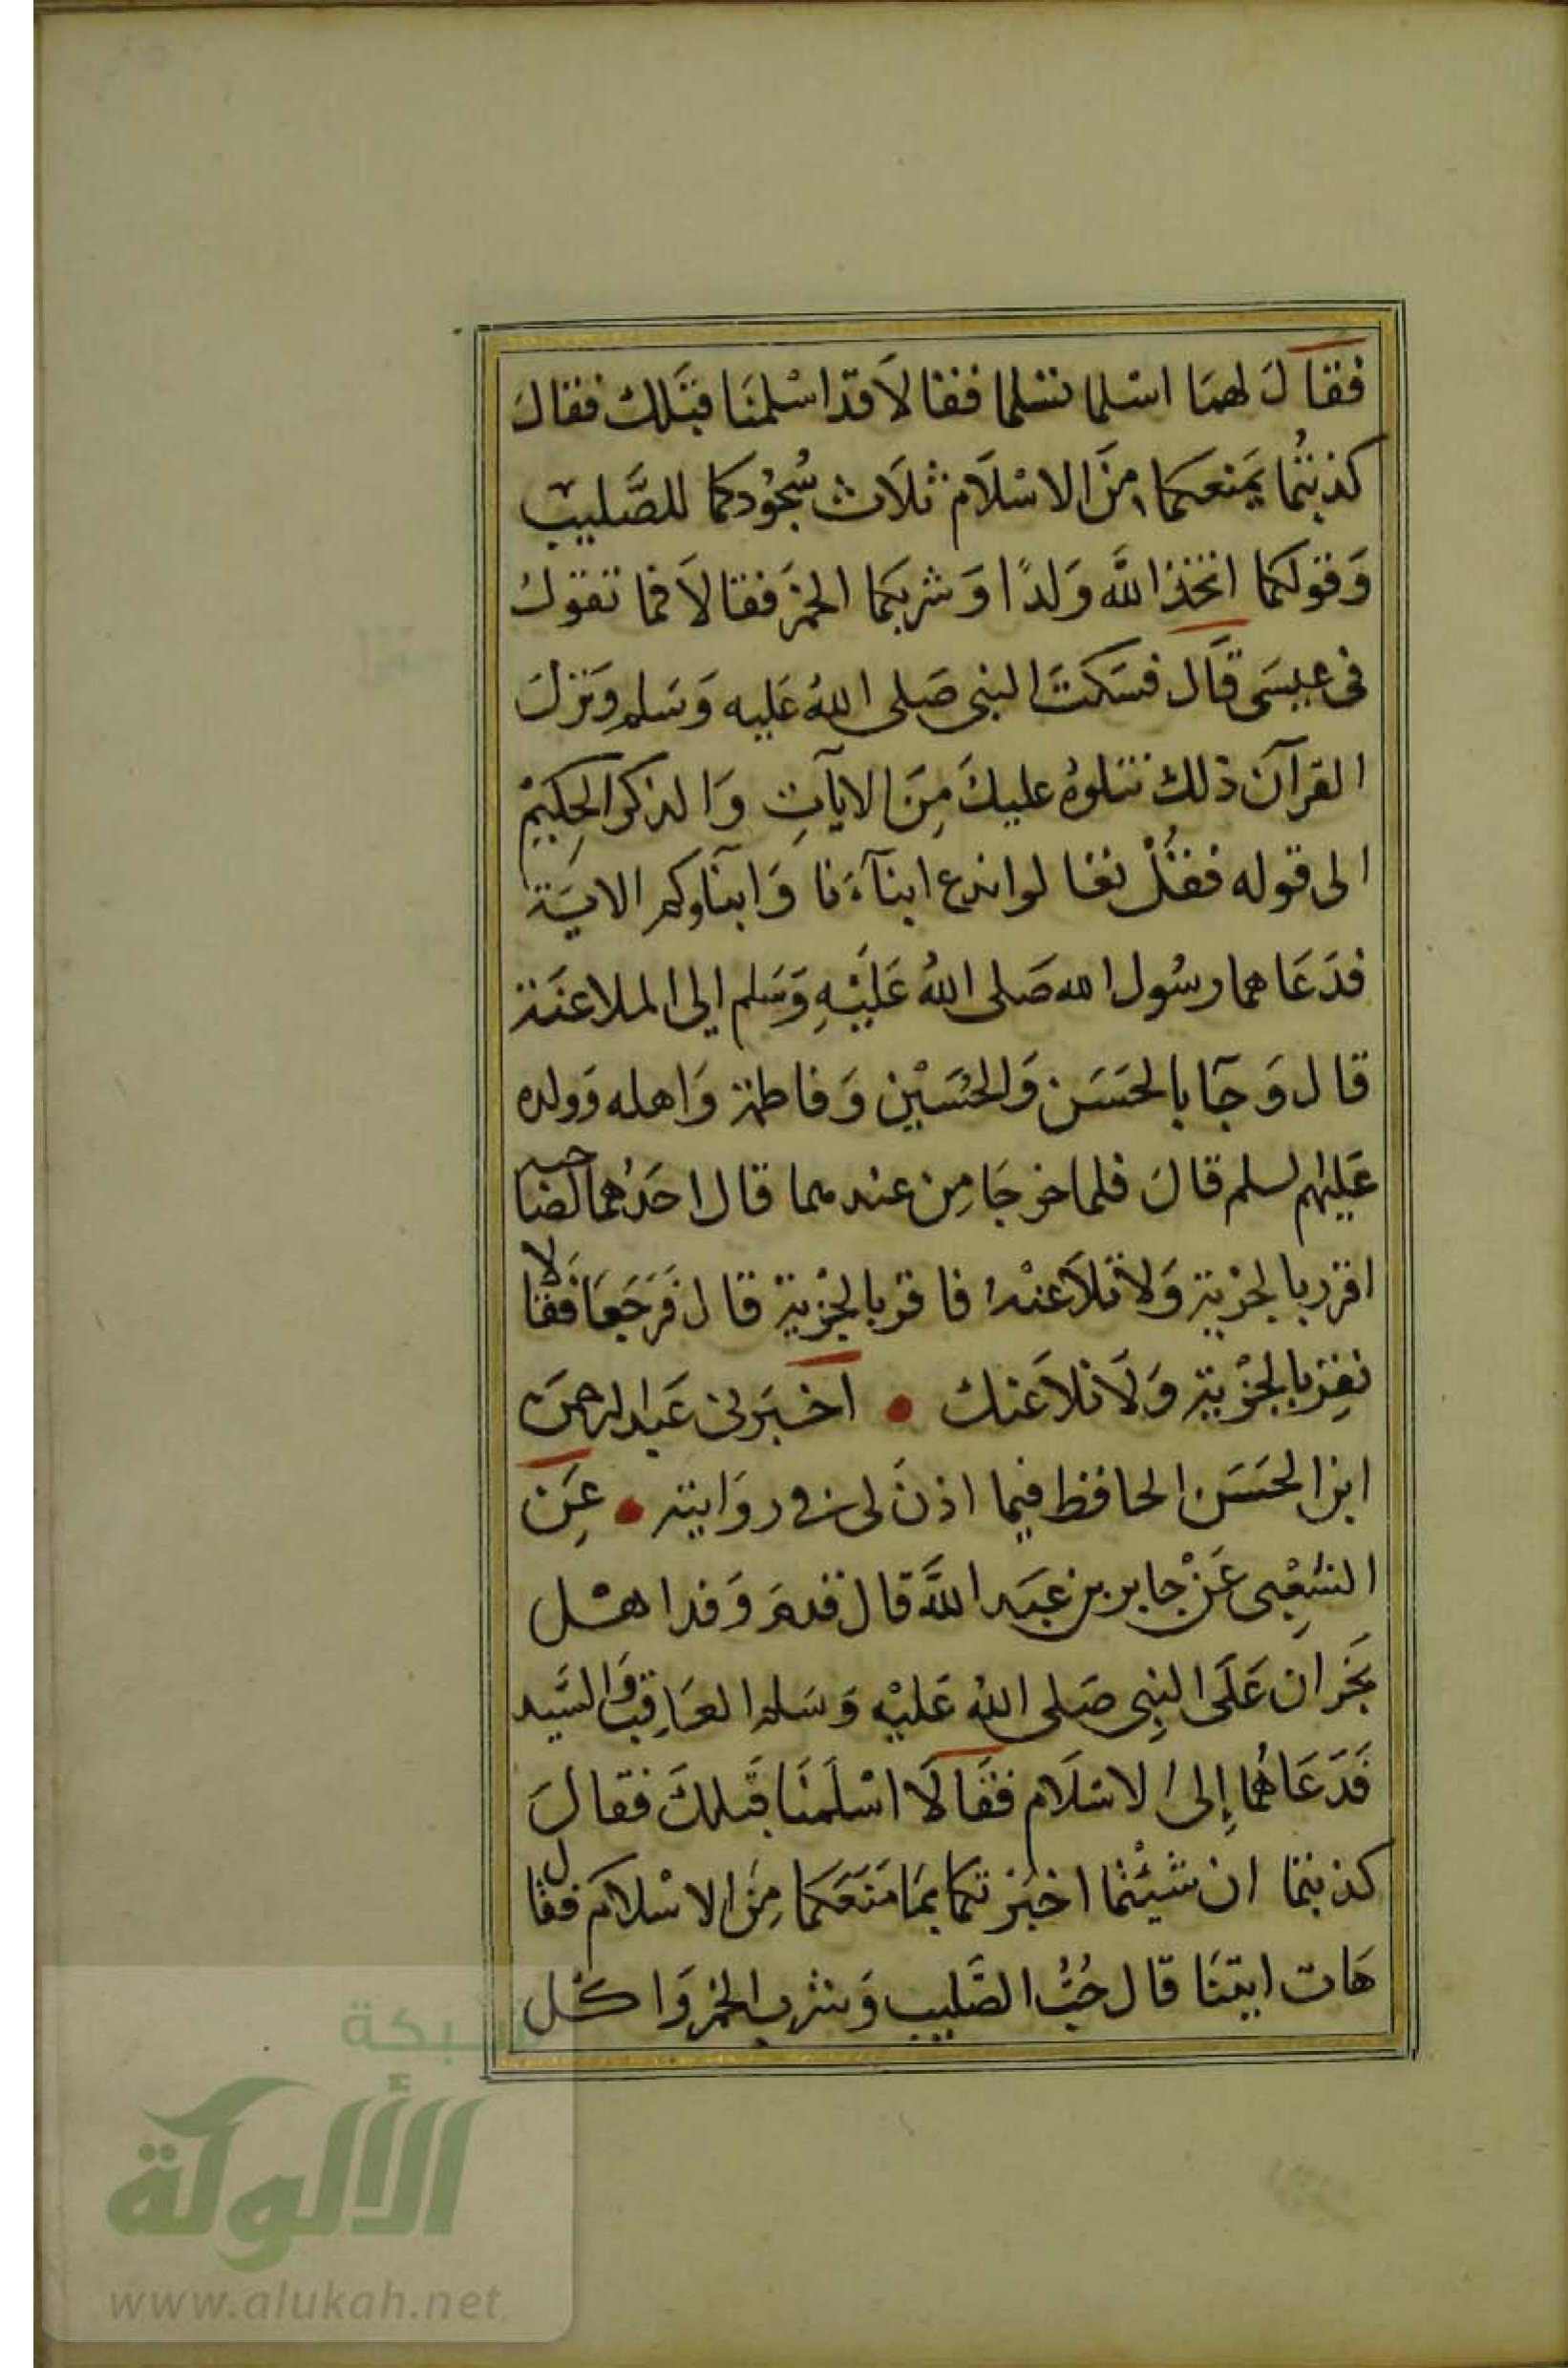 فقالَ لهمَا اسْلما تسْلما فقالاَ قدْ اسْلمنَا قبَلك فقالَ
كذبتُما يمَنعكما مِنَ الاسْلاَم ثلاَث سُجوُدكما للصَّليب
وَقولكما اتخذ اللَّه وَلدًا وَشربكمَا الخمرَ فقالاَ فما تقول
في عيسَى قاَل فسَكتَ النبي صَلى اللهُ عَليه وَسَلم وَنزلَ
القرآن ذلك نتلوهُ عليكَ مِنَ الايآتِ وَالذكر الحِكيمْ
الى قوله فقُلْ تعَالوا ندع ابنآءَنا وَابنآوكم الايَة
فدَعَاهما رسُول الله صَلى اللهُ عَليْهِ وَسَلم الى الملاعنَة
قال وَجَا بالحسَن وَالحُسَيْن وَفاطمة وَاهله وَولده
عَليْهم السلم قالَ فلما خرجَا مِن عنده قال احَدُهما لصَاحبه
اقرر بالجزْية وَلاَ تلاَعنْهُ فاقر بالجزْية قال فرَجَعَا فقالا
نقِرّ بالجزْية وَلاَ نلاَعنك • اخبَرني عَبد الرحمن
ابن الحسَن الحافظ فيما اذنَ لي في روَايته • عَن
الشعِْبي عَنْ جابر بن عَبد اللَّه قال قدمَ وَفد اهْل
نجَران عَلَى النبِي صَلى اللهُ عَليْه وَسَلم العَاقب وَالسَّيد
فَدَعَاهُما إِلى الاسْلاَم فقَالاَ اسْلَمنَا قبَلكَ فقالَ
كذبتما ان شيئْتما اخبَرْتكما بمَا مَنعَكما مِنَ الاسْلاَم فقالا
هَات ابتنَا قال حُبُّ الصَّليب وَشرب الخمر وَاكل
شبكة
الألوكة
www.alukah.net